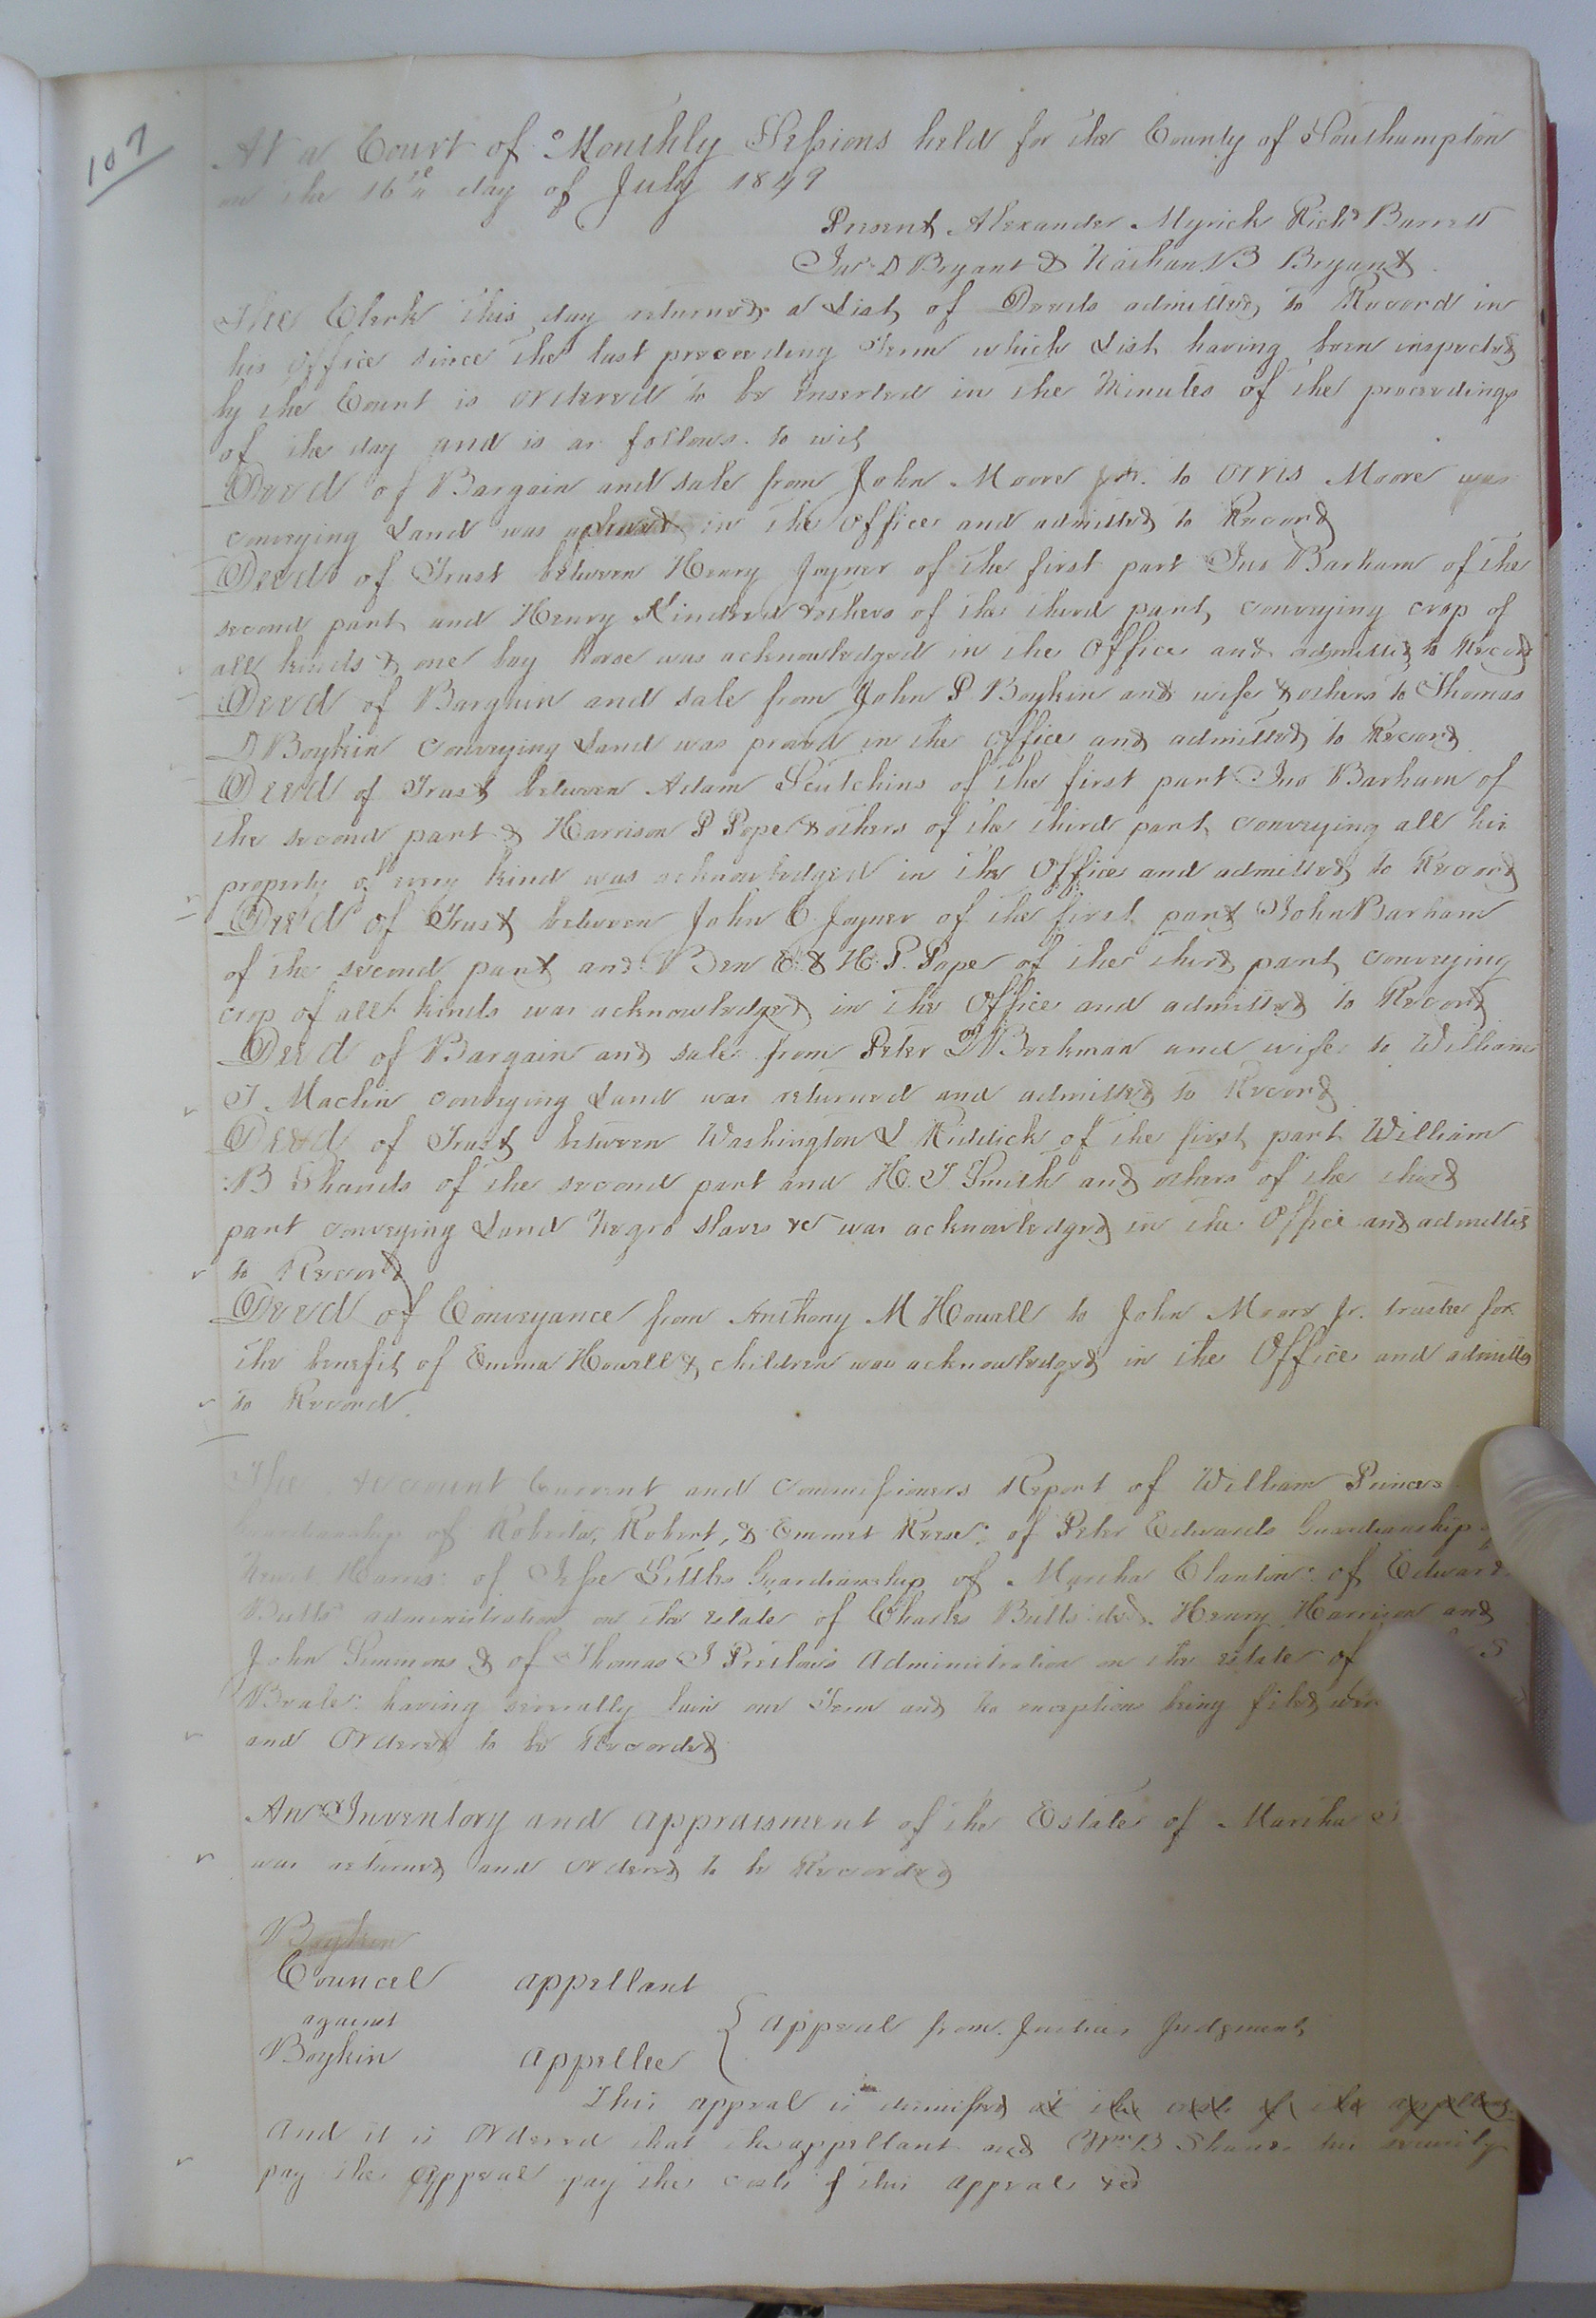 107
At a Court of Monthly Sessions held for the County of Southampton
on the 16th day of July 1849
Present Alexander Myrick Richd Barrett
Jas D Bryant & Nathan B Bryant
The Clerk this day returned a List of Deeds admitted to Record in
his office since the last preceeding Term which List having been inspected
by the Court is ordered to be inserted in the Minutes of the proceedings
of the day and is as follows. to wit
Deed of Bargain and sale from John Moore jr. to Orris Moore
conveying Land was in the office and admitted to Record
Deed of Trust between Henry Joyner of the first part Jno Barham of the
second part and Henry Kindred & others of the third part, conveying crop of
all kinds & one bay horse was acknowledged in the Office and admitted to Record
Deed of Bargain and sale from John P Boykin and wife & others to Thomas
D Boykin conveying Land was proved in the office and admitted to Record
Deed of Trust between Adam Scutchins of the first part Jno Barham of
the second part & Harrison P Pope & others of the third part, conveying all his
property of every kind was acknowledged in the Office and admitted to Record
Deed of Trust between John C Joyner of the first part John Barham
of the second part and Ben E. & H. P. Pope of the third part, conveying
crop of all kinds was acknowledged in the Office and admitted to Record
Deed of Bargain and sale from Peter Beekman and wife to William
T Maclin conveying Land was returned and admitted to Record
Deed of Trust between Washington L Riddick of the first part William
B Shands of the second part and H. T Smith and others of the third
part conveying Land Negro slaves &c was acknowledged in the Office and admitted
to Record
Deed of Conveyance from Anthony M Howell to John Moore Jr. trustee for
the benefit of Emma Howell & children was acknowledged in the Office and admitted
to Record.
The account Current and Commissioners Report of William Princes
Guardianship of Roberta, Robert, & Emmet Reese: of Peter Edwards Guardianship
Harris: of Jesse Littles Guardianship of Martha Clanton: of Edward
Butts administration on the estate of Charles Butts decd. Henry Harrison and
John Simmons & of Thomas J Pretlow's Administration on the estate of S
Beale: having severally lain one Term and no exception being filed were
and Ordered to be Recorded
An Inventory and appraisment of the Estate of Martha
was returned and ordered to be Recorded
Boykin
Councel appellant
against
Appeal from Justices Judgment
Boykin appellee
This appeal is dismissed at the costs of the appellant
And it is Ordered that the appellant and Wm B Shands his security
pay the appeal pay the costs of this appeal &c